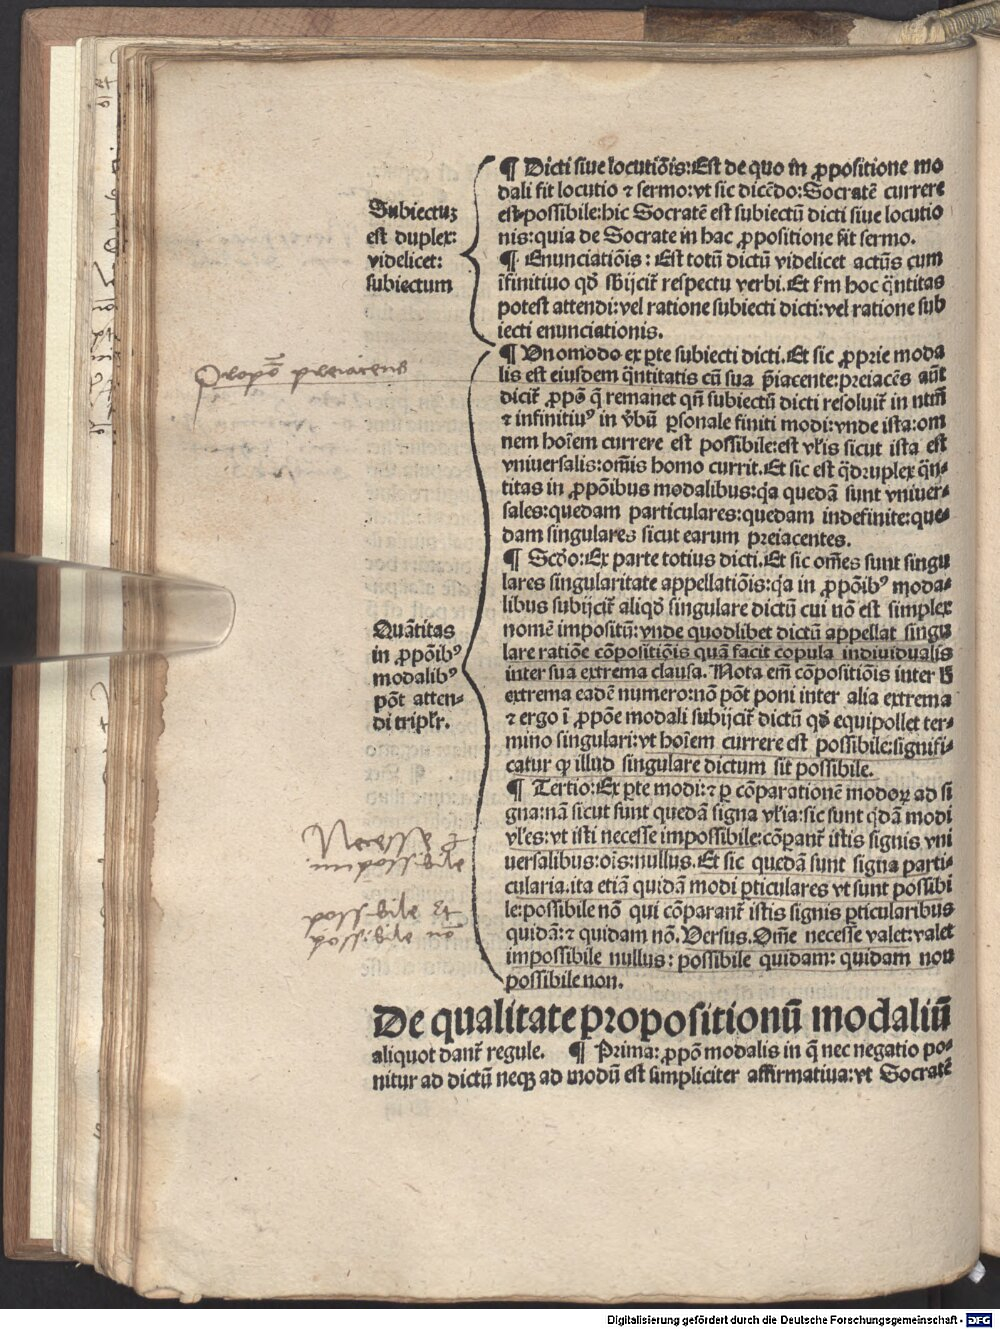 Subiectuʒ
est duplex:
videlicet:
subiectum
¶ Dicti siue locutiōis: Est de quo in ꝓpositione mo
dali fit locutio ⁊ sermo: vt sic dicēdo: Socratē currere
est possibile: hic Socratē est subiectū dicti siue locutio
nis: quia de Socrate in hac ꝓpositione fit sermo.
¶ Enunciatiōis: Est totū dictū videlicet actūs cum
īfinitiuo qđ sbijcit̄ respectu verbi. Et sm hoc q̄ntitas
potest attendi: vel ratione subiecti dicti: vel ratione sub
iecti enunciationis.
Propō preiacens
Quātitas
in ꝓpōibꝰ
modalibꝰ
pōt atten⸗
di triplr̄.
¶ Vnomodo ex ꝑte subiecti dicti. Et sic ꝓprie moda
lis est eiusdem q̄ntitatis cū sua p̄iacente: preiacēs aūt
dicit̄ ꝓpō q̄ remanet qn̄ subiectū dicti resoluit̄ in ntm̄
⁊ infinitiuꝰ in v̄bū ꝑsonale finiti modi: vnde ista: om
nem hoīem currere est possibile: est vl̄is sicut ista est
vniuersalis: omīs homo currit. Et sic est q̄druplex q̄n⸗
titas in ꝓpōibus modalibus: q̄a quedā sunt vniuer⸗
sales: quedam particulares: quedam indefinite: que⸗
dam singulares sicut earum preiacentes.
¶ Scđo: Ex parte totius dicti. Et sic om̄es sunt singu
lares singularitate appellatiōis: q̄a in ꝓpōibꝰ moda⸗
libus subijcit̄ aliqđ singulare dictū cui nō est simplex
nomē impositū: vnde quodlibet dictū appellat singu
lare ratiōe cōpositiōis quā facit copula indiuidualis
inter sua extrema clausa. Nota em̄ cōpositiōis inter h
extrema eadē numero: nō pōt poni inter alia extrema
⁊ ergo ī ꝓpōe modali subijcit̄ dictū qđ equipollet ter⸗
mino singulari: vt hoīem currere est possibile: signifi⸗
catur ꝙ illud singulare dictum sit possibile.
¶ Tertio: Ex ꝑte modi: ⁊ ꝑ cōparationē modoꝝ ad si
gna: nā sicut sunt quedā signa vl̄ia: sic sunt q̄dā modi
vl̄es: vt isti necesse impossibile: cōpant̄ istis signis vni
uersalibus: oīs: nullus. Et sic quedā sunt signa parti⸗
cularia. ita etiā quidā modi ꝑticulares vt sunt possibi
le: possibile nō qui cōparant̄ istis signis ꝑticularibus
quidā: ⁊ quidam nō. Versus. Om̄e necesse valet: valet
impossibile nullus: possibile quidam: quidam non
possibile non.
Necesse
De qualitate propositionū modaliū
aliquot dant̄ regule. ¶ Prima: ꝓpō modalis in q̄ nec negatio po⸗
nitur ad dictū neqꝫ ad modū est simpliciter affirmatiua: vt Socratē
Digitalisierung gefördert durch die Deutsche Forschungsgemeinschaft - DFG